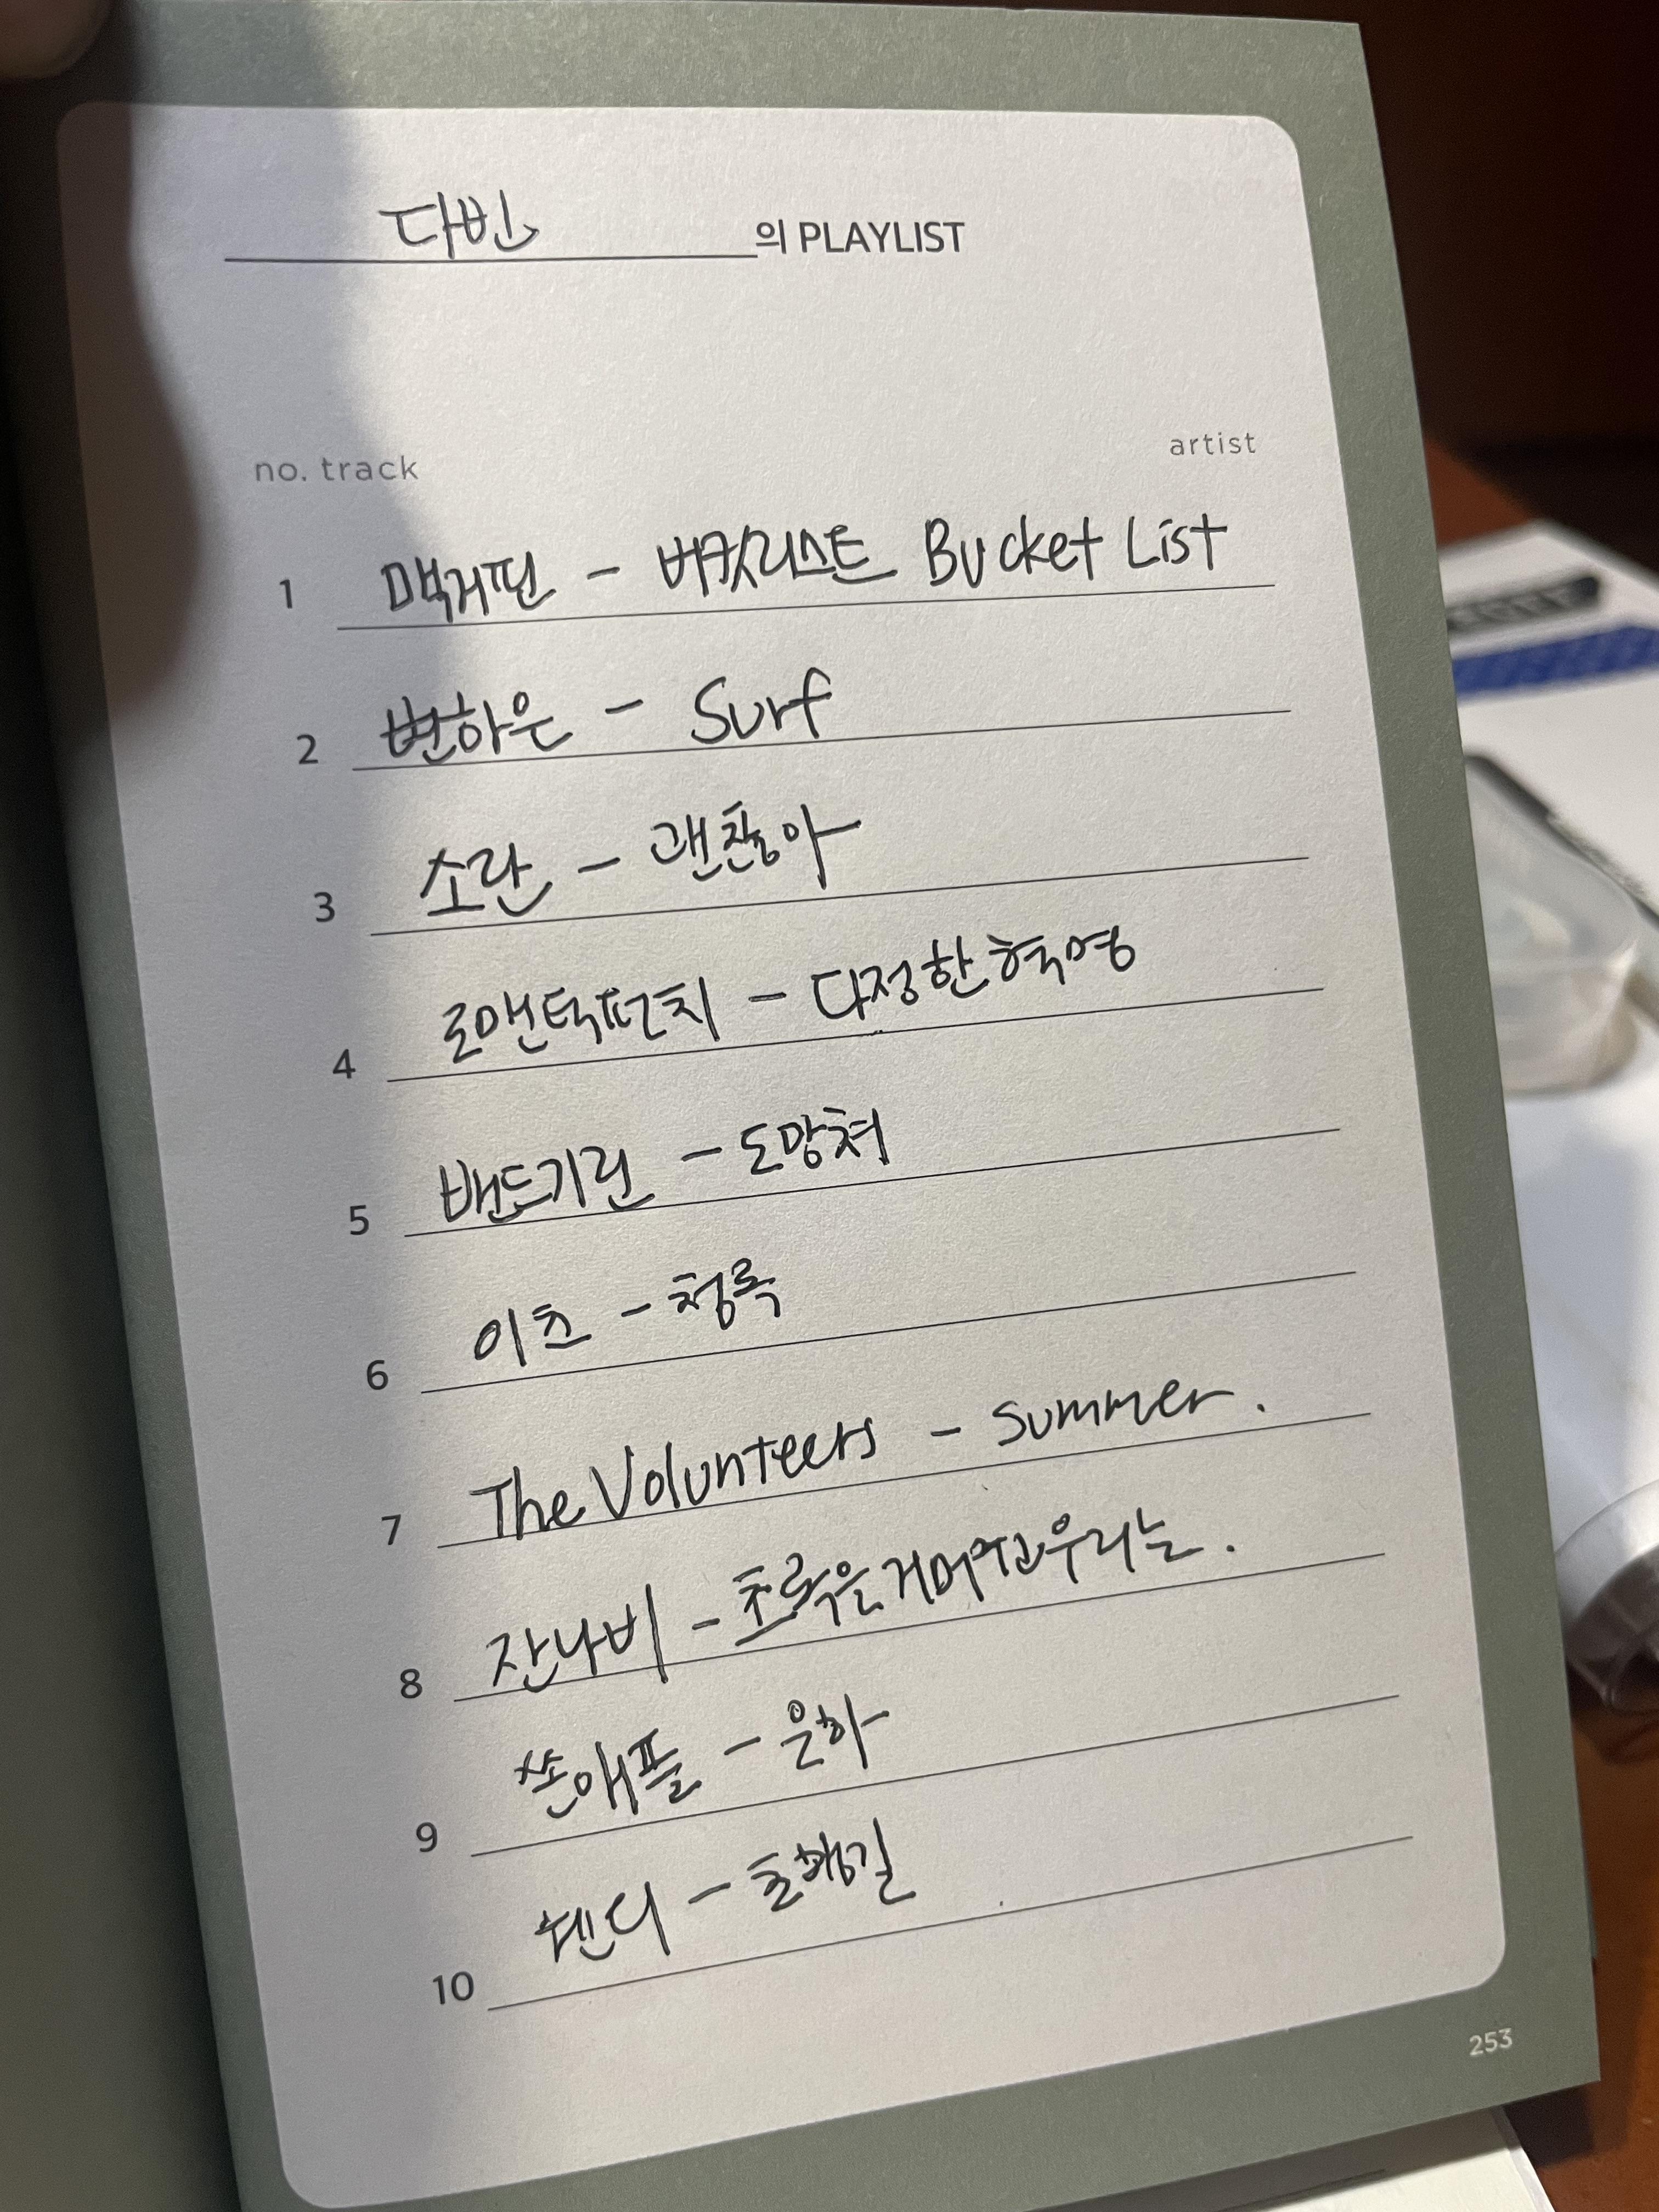 다빈 의 PLAYLIST
no. track artist
1 맥거핀 - 버킷리스트 Bucket List
2 변하은 - Surf
3 소란 - 괜찮아
4 로맨틱펀치 - 다정한혁명
5 밴드기린 - 도망쳐
6 이츠 - 청록
7 The Volunteers - Summer.
8 잔나비 - 초록을거머쥔우리는.
9 쏜애플 - 은하
10 웬디 - 초행길
253